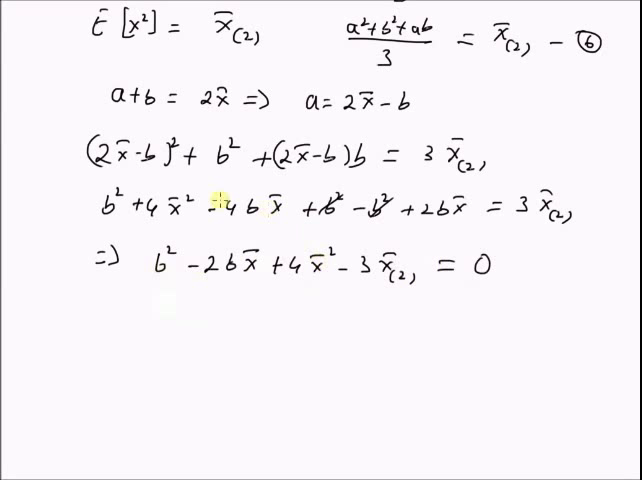 E [x²] = x̄₍₂₎   (a²+b²+ab)/3 = x̄₍₂₎ – ⑥
a+b = 2x̄ => a = 2x̄ – b
(2x̄–b)² + b² + (2x̄–b)b = 3 x̄₍₂₎
b² + 4x̄² – 4bx̄ + b² – b² + 2bx̄ = 3 x̄₍₂₎
=> b² – 2bx̄ + 4x̄² – 3x̄₍₂₎ = 0